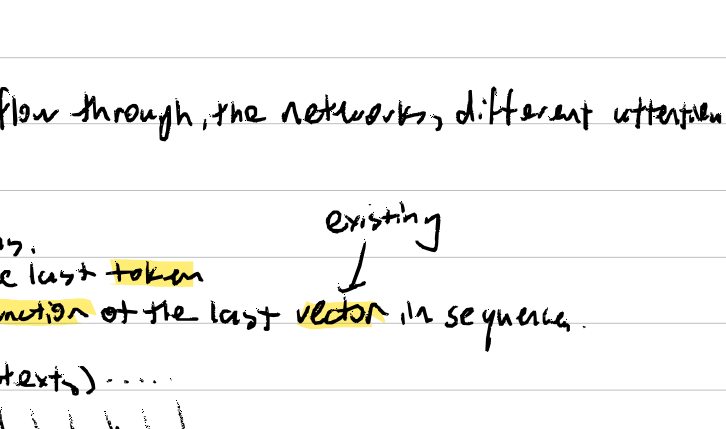 flow through, the networks, different attention
existing
s.
e last token
nction of the last vector in sequence.
texts) .....